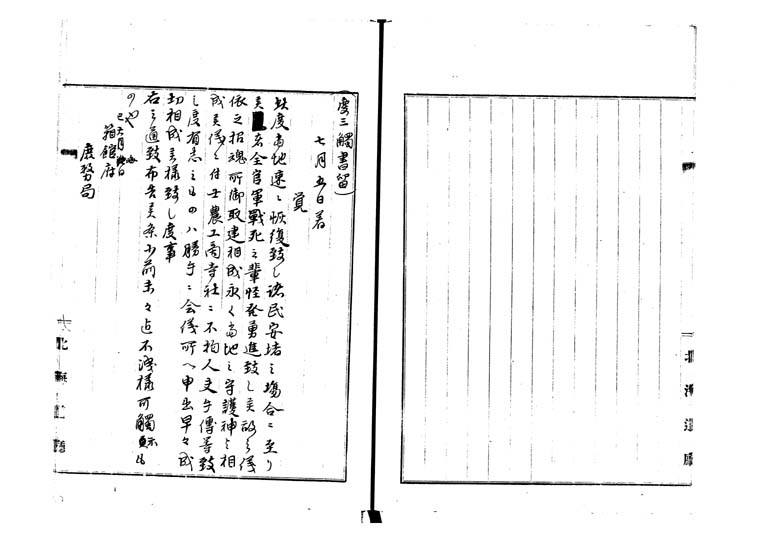 (虔三觸書留)
七月五日着
覚
此度当地速ニ恢復致し諸民安堵之場合ニ至り
候者全官軍戦死之輩性発勇進致し候故之儀
依之招魂所御取建相成永く当地之守護神と相
成候儀ニ付士農工商寺社ニ不拘人夫手傳等致
し度有志之ものハ勝手ニ会議所へ申出早々成
切相成候様致し度事
右之通致布告候条小前末々迄不洩様可觸示も
の也
巳六月
箱館府
庶務局
北海道廳